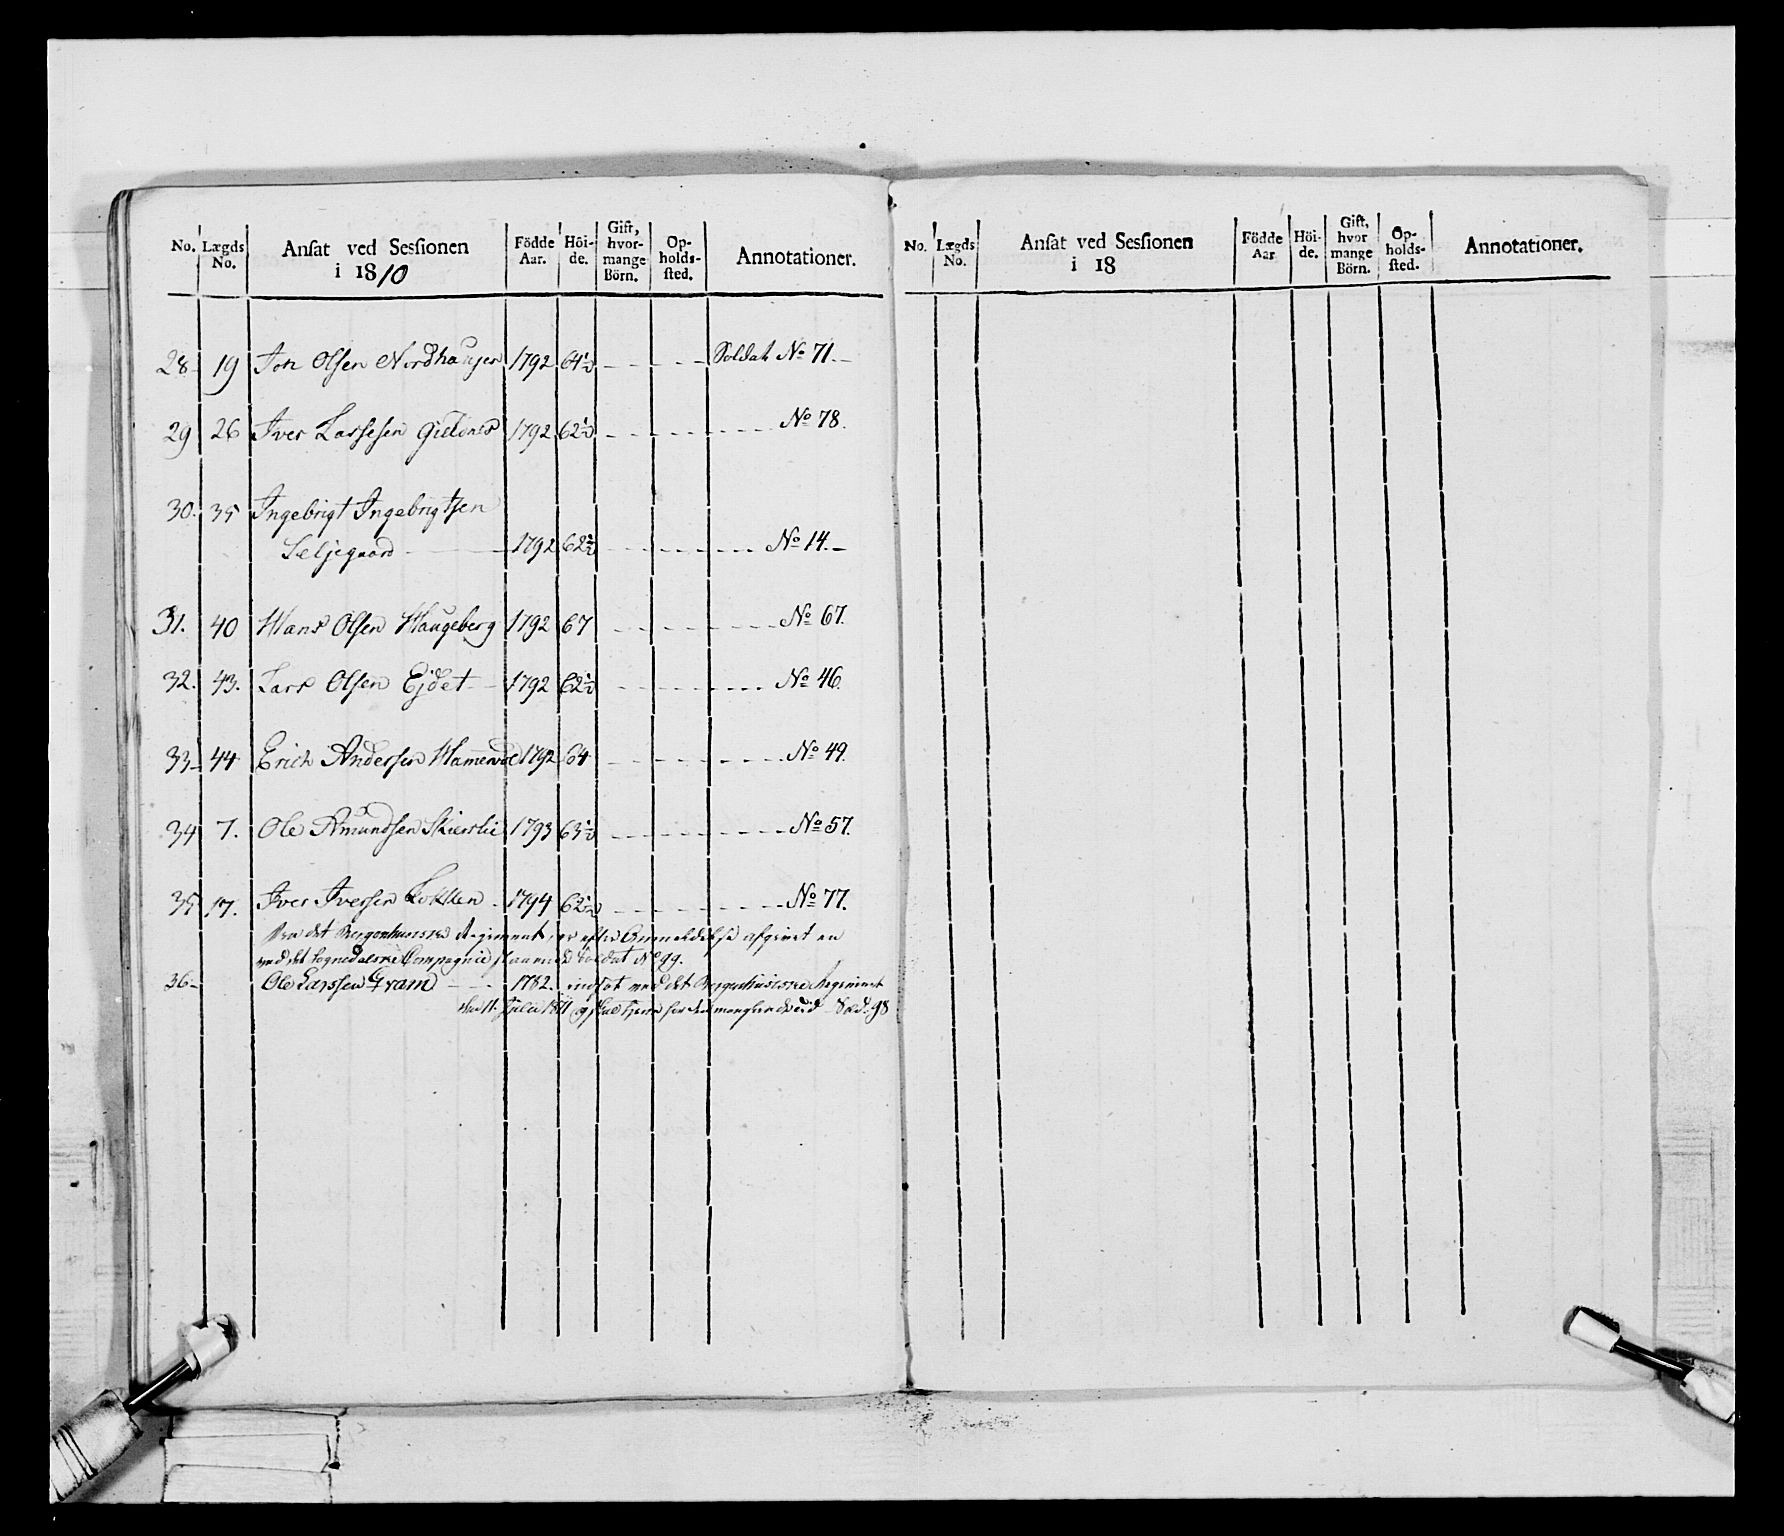 No. Lægds No. Ansat ved Sessionen i 1810 Födde Aar. Höi-de. Gift, hvor-mange Börn. Op-holds-sted. Annotationer.
28 19 Jon Olsen Nordhaugen 1792 64½ Soldat No 71.
29 26 Iver Larsesen 1792 62½ No 78.
30. 35 Ingebrigt Ingebrigtsen
Seljegaard 1792 62½ No 14.
31. 40 Hans Olsen Haugeberg 1792 67 No 67.
32. 43. Lars Olsen Ejdet 1792 62½ No 46.
33 44 Erich Andersen 1792 64 No 49.
34 7. Ole Amundsen Skierlie 1793 63½ No 57.
35 17. Iver Iversen Lokken 1794 62½ No 77.
Fra det Bergenhuusiske Regiment, er efter Anmeldelse afgivet en
ved det Sognedalske Compagnie staaende Soldat No 99.
36 Ole Larssen Gram 1782. indsat ved det Bergenhusiske Regiment
den 11 Julii 1811 og skal tjene for den Sold. 98
No. Lægds No. Ansat ved Sessionen i 18 Födde Aar Höi-de. Gift, hvor mange Börn. Op-holds-sted. Annotationer.